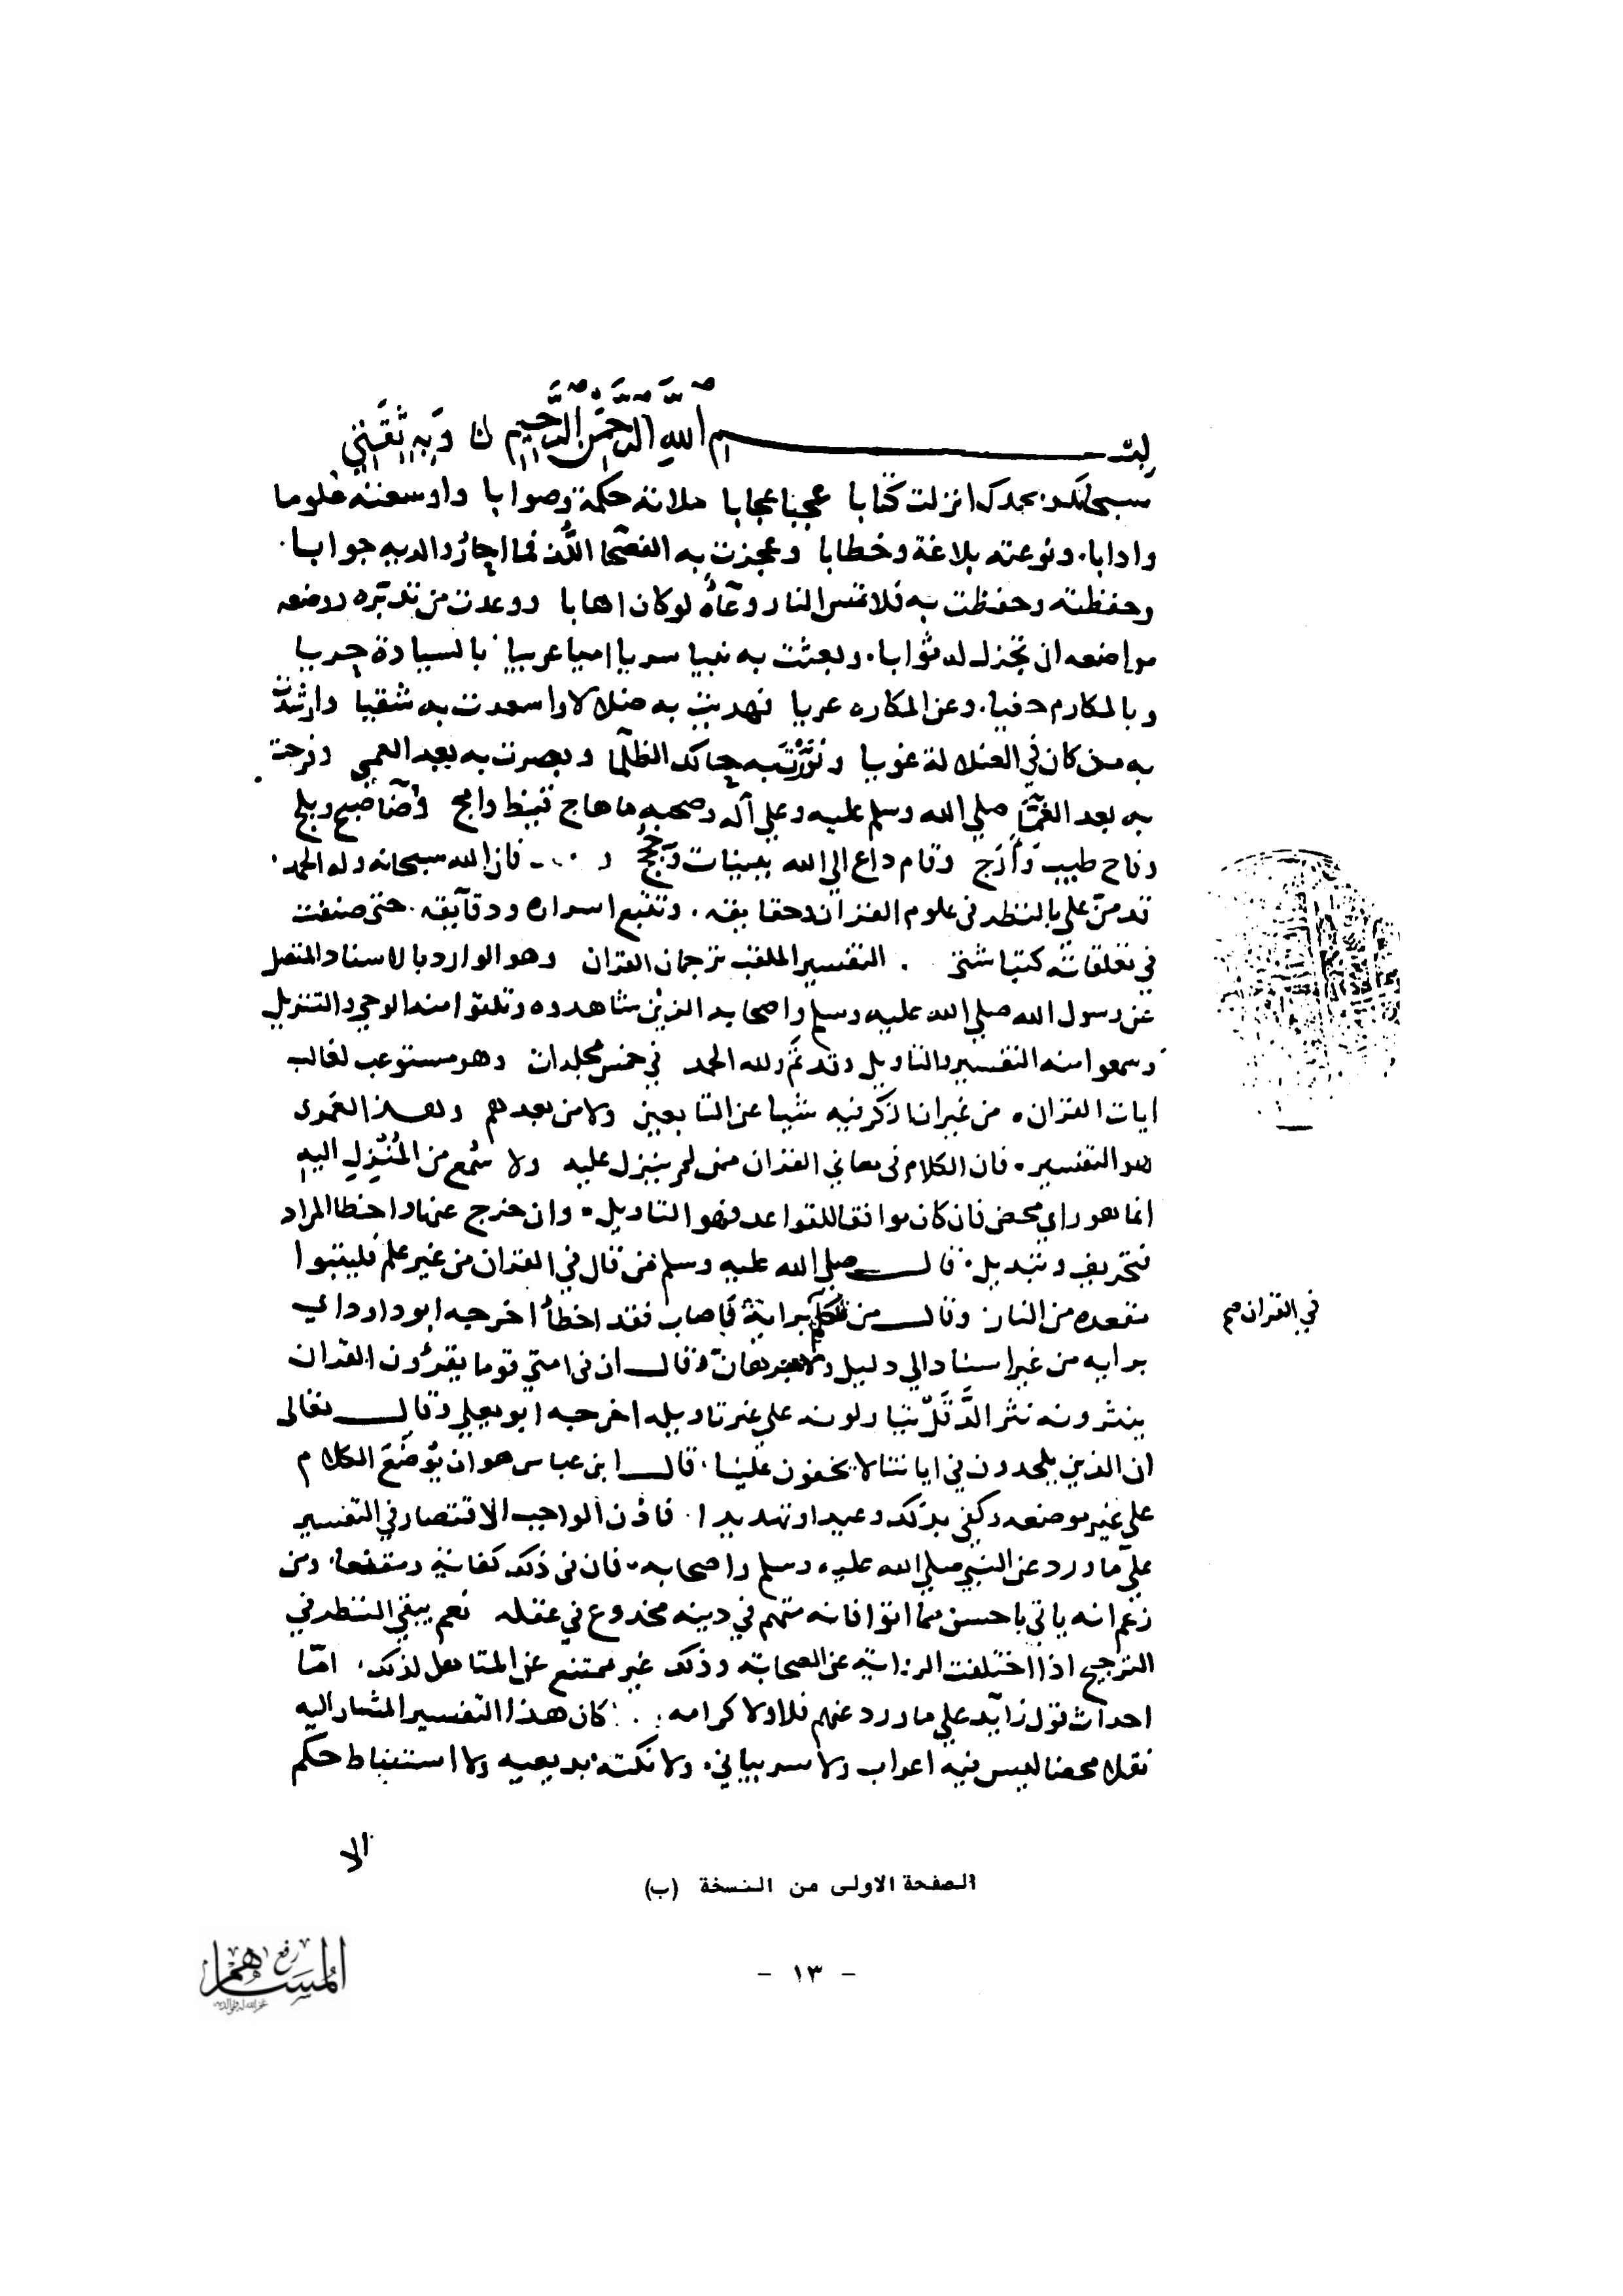 بسم الله الرحمن الرحيم وبه ثقتي
سبحانك بحمدك انزلت كتابا عجبا عجابا ملاته حكمة وصوابا واوسعته علوما
وادابا. ونوعته بلاغة وخطابا وعجزت به الفصحا اللُّد فما اجازوا لديه جوابا.
وحفظته وحفظت به فلا تمس النار وعاه لو كان اهابا ووعدت من تدبره ووضعه
مواضعه ان تجزل له ثوابا. وبعثت به نبيا سريا اميا عربيا بالسيادة حريا
وبالمكارم حفيا. وعن المكاره عريا فهديت به ضلالا واسعدت به شقيا وارشدت
به من كان في الضلالة غويا ونوَّرْتَ به حالك الظلمآ وبصرت به بعد العمى وفرجت
به بعد الغمآ صلي الله وسلم عليه وعلي آله وصحبه ما هاج وامج وأضا صبح وبلج
وفاح طيب وأَرَج وقام داع الي الله ببينات وحجج و فان الله سبحانه وله الحمد.
قد منّ علي بالنظر في علوم القران وحقايقه. وتتبع اسراره ودقآيقه. حتى صنفت
في تعلقاته كتبا شتى . التفسير الملقب ترجمان القران وهو الوارد بالاسناد المتصل
عن رسول الله صلي الله عليه وسلم واصحابه الذين شاهدوه وتلقوا منه الوحي والتنزيل
وسمعوا منه التفسير والتاويل وقد تم ولله الحمد في خمس مجلدات وهو مستوعب لغالب
ايات القران. من غير ان اذكر فيه شيا عن التابعين ولا من بعدهم وهذا لعمرى
هو التفسير. فان الكلام فى معاني القران ممن لم ينزل عليه ولا سُمع من المُنَزل اليه
انما هو راي محض فان كان موافقا للقواعد فهو التاويل. وان خرج عنها واخطا المراد
فتحريف وتبديل. قال صلي الله عليه وسلم من قال في القران من غير علم فليتبوا
مقعده من النار وقال من تكلم برايه فاصاب فقد اخطأ اخرجه ابو داود اي
في القران صح
برايه من غير اسناد الي دليل ولا برهان وقال ان فى امتي قوما يقرؤن القران
ينثرونه نثر الدَّقَل يتاولونه علي غير تاويله اخرجه ابو يعلي وقال تعالى
ان الذين يلحدون في اياتنا لا يخفون علينا. قال ابن عباس هو ان يُوضَع الكلام
علي غير موضعه وكفي بذلك وعيدا وتهديدا. فاذن الواجب الاقتصار في التفسير
علي ما ورد عن النبي صلي الله عليه وسلم واصحابه. فان في ذلك كفاية ومقنعا. ومن
زعم انه ياتي باحسن مما اتوا فانه متهم في دينه مخدوع في عقله نعم يبقي النظر في
الترجيح اذا اختلفت الرواية عن الصحابة وذلك غير ممتنع عن المتاهل لذلك. امّا
احداث قول زآيد علي ما ورد عنهم فلا ولا كرامه. كان هذا التفسير المشار اليه
نقلا محضا ليس فيه اعراب ولا سر بياني. ولا نكتة بديعيه ولا استنباط حكم
الا
الصفحة الاولى من النسخة (ب)
- ١٣ -
رفع
المساهم
غفر الله له ولوالديه